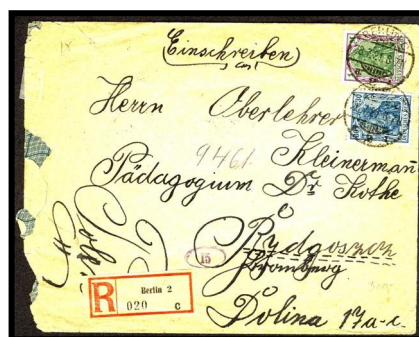 Einschreiben
Herrn Oberlehrer
9461.
Kleinermann
Pädagogium Dr Kothe
15
Bydgoszcz
Bromberg
R
Berlin 2
020 c
Dolina 17a-c.